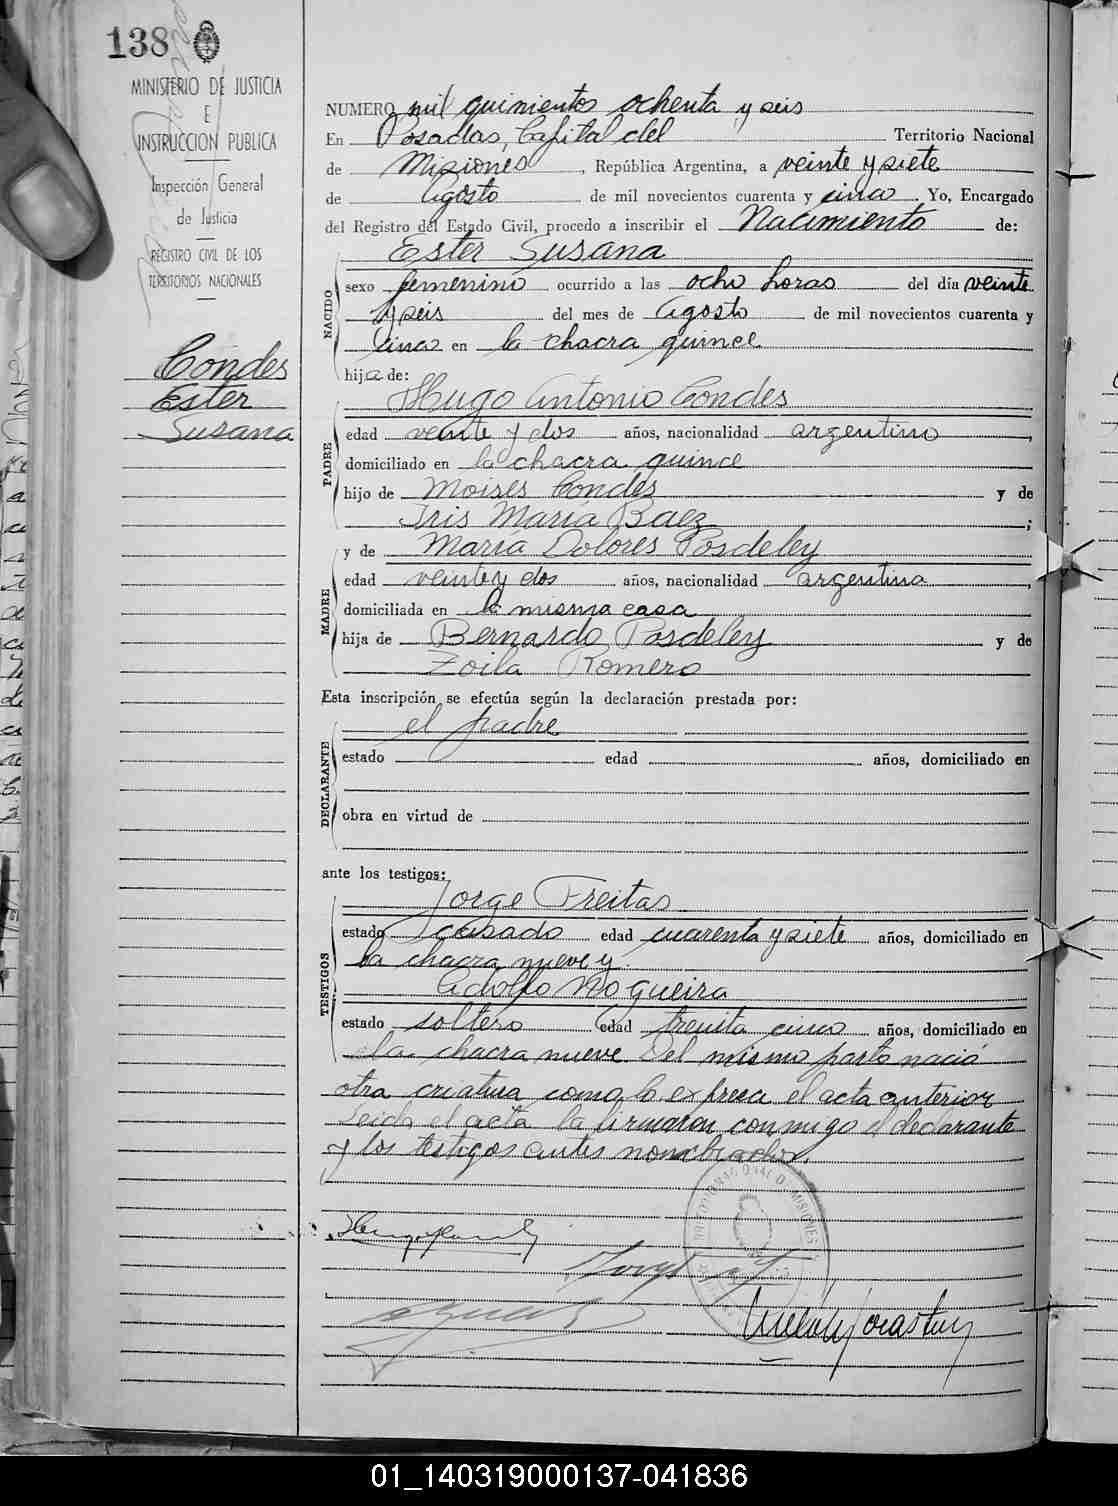 138
MINISTERIO DE JUSTICIA
E
INSTRUCCION PUBLICA
Inspección General
de Justicia
REGISTRO CIVIL DE LOS
TERRITORIOS NACIONALES
Condes
Ester
Susana
NUMERO mil quinientos ochenta y seis
En Posadas, Capital del Territorio Nacional
de Misiones, República Argentina, a veinte y siete
de Agosto de mil novecientos cuarenta y cinco Yo, Encargado
del Registro del Estado Civil, procedo a inscribir el Nacimiento de:
NACIDO
Ester Susana
sexo femenino ocurrido a las ocho horas del día veinte
y seis del mes de Agosto de mil novecientos cuarenta y
cinco en la chacra quince
hija de:
PADRE
Hugo Antonio Condes
edad veinte y dos años, nacionalidad argentino,
domiciliado en la chacra quince
hijo de Moises Condes y de
Iris María Baez;
MADRE
y de María Dolores Posdeley
edad veinte y dos años, nacionalidad argentina,
domiciliada en la misma casa
hija de Bernardo Posdeley y de
Zoila Romero
Esta inscripción se efectúa según la declaración prestada por:
DECLARANTE
el padre
estado edad años, domiciliado en
obra en virtud de
ante los testigos:
TESTIGOS
Jorge Freitas
estado casado edad cuarenta y siete años, domiciliado en
la chacra nueve y
Adolfo Nogueira
estado soltero edad treinta cinco años, domiciliado en
la chacra nueve Del mismo parto nació
otra criatura como lo expresa el acta anterior
Leida el acta la firmaron conmigo el declarante
y los testigos antes nombrados.
01_140319000137-041836